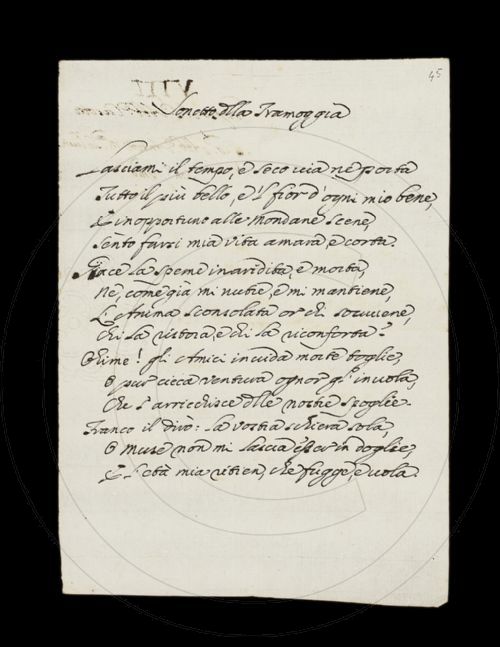 45
VIII
Sonetto della Tramoggia
Lasciami il tempo, e seco via ne porta
Tutto il più bello, e 'l fior d'ogni mio bene,
E inopportuno alle mondane scene,
Sento farsi mia vita amara e corta.
Giace la speme inaridita, e morta,
Nè, come già, mi nutre, e mi mantiene,
L'Anima sconsolata or chi sovviene,
Chi la ristora, e chi la riconforta?
Ohime! gli Amici invida morte toglie,
O pur cieca ventura ognor gl' invola,
Che s'arricchisce delle nostre spoglie.
Franco il divo: la vostra schiera sola,
O Muse non mi lascia esser in doglie,
E l'età mia ritien, che fugge, e vola.